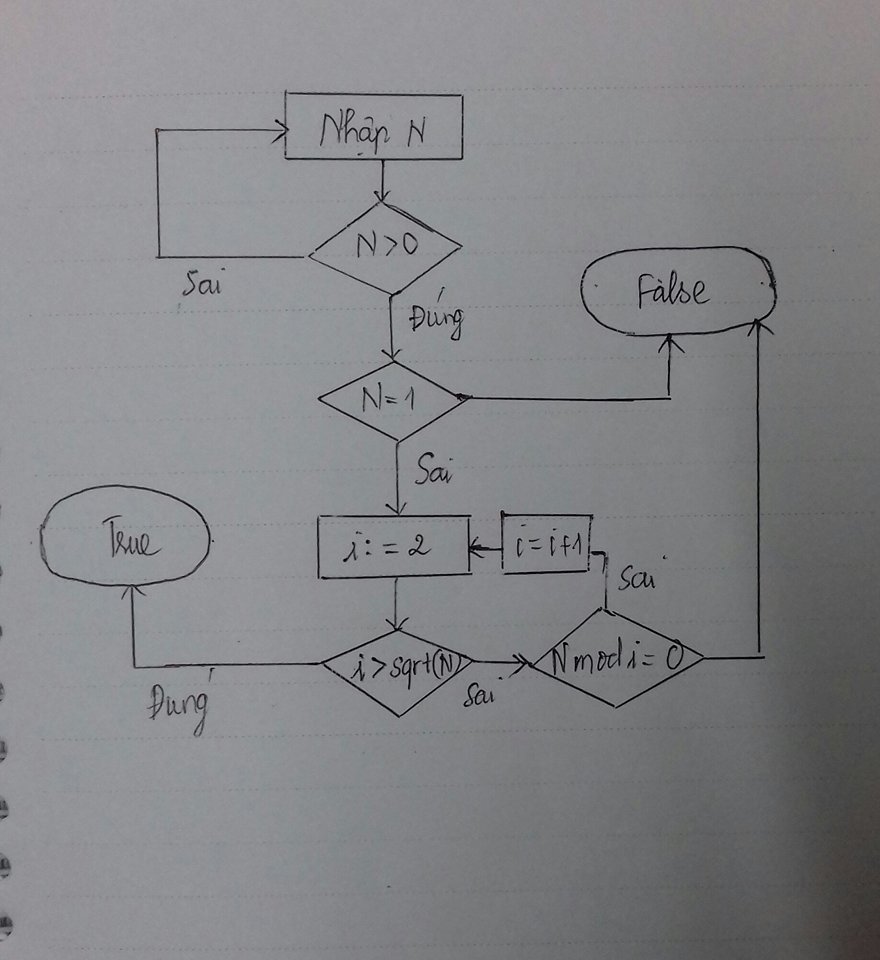 Nhập N
N>0
Sai
Đúng
False
N=1
Sai
True
i:=2
i=i+1
Sai
i>sqrt(N)
Sai
N mod i=0
Đúng